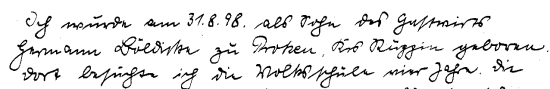 Ich wurde am 31.8.98. als Sohn des Gastwirts
Hermann Böldicke zu Protzen, Krs Ruppin geboren.
dort besuchte ich die Volksschule vier Jahre. die